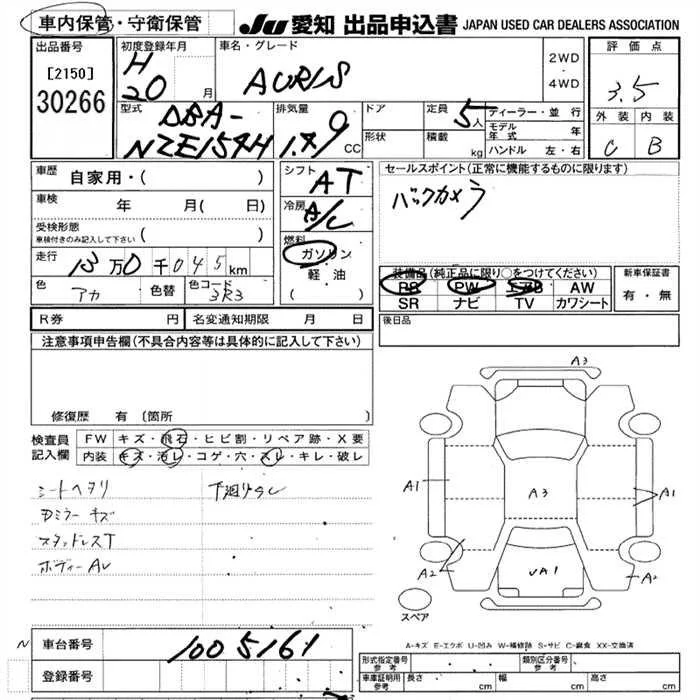 車内保管・守衛保管
JU 愛知 出品申込書 JAPAN USED CAR DEALERS ASSOCIATION
出品番号
[2150]
30266
初度登録年月
H
20 月
車名・グレード
AURIS
2WD
・
4WD
評価点
3.5
外装 内装
C B
型式
DBA-
NZE154H
排気量
1.49 CC
ドア
形状
定員
5人
積載 kg
ディーラー・並行
モデル年式 年
ハンドル 左・右
車歴
自家用・( )
車検 年 月( 日)
受検形態
車検付きのみ記入して下さい ( )
走行 13万0千045km
色 アカ 色替 色コード 3R3
シフト
AT
冷房
A/C
燃料
ガソリン
軽油
( )
セールスポイント(正常に機能するものに限ります)
バックカメラ
装備品(純正品に限り○をつけてください)
PS PW エアB AW
SR ナビ TV カワシート
新車保証書
有・無
R券 円 名変通知期限 月 日
後日品
注意事項申告欄(不具合内容等は具体的に記入して下さい)
修復歴 有 〔箇所 〕
検査員
記入欄
FW キズ・飛石・ヒビ割・リペア跡・X要
内装 キズ・汚レ・コゲ・穴・スレ・キレ・破レ
シートヘタリ
下廻りサビ
Dミラー キズ
スタッドレスT
ボディーAU
A3
A1
A3
A1
A2
A2
A1
スペア
A-キズ E-エクボ U-凹み W-補修跡 S-サビ C-腐食 XX-交換済
N
車台番号 1005161
登録番号
形式指定番号
参考
類別区分番号
参考
車庫証明用
参考
長さ cm 幅 cm 高さ cm